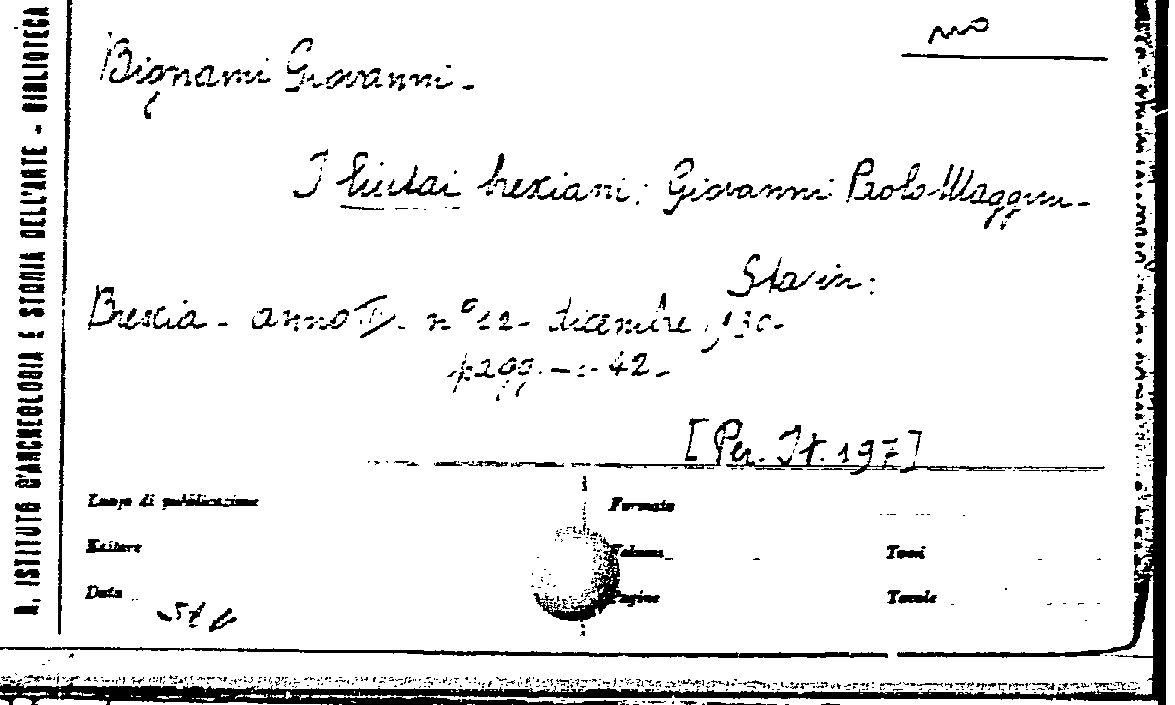 R. ISTITUTO D'ARCHEOLOGIA E STORIA DELL'ARTE - BIBLIOTECA
mo
Bignami Giovanni -
I liutai bresciani: Giovanni Paolo Maggini -
Sta in:
Brescia - anno II - n° 12 - dicembre, 930 -
pagg. - : - 42 -
[Per. It. 197]
Luogo di pubblicazione
Formato
Editore
Volume
Tomi
Data
Pagine
Tavole